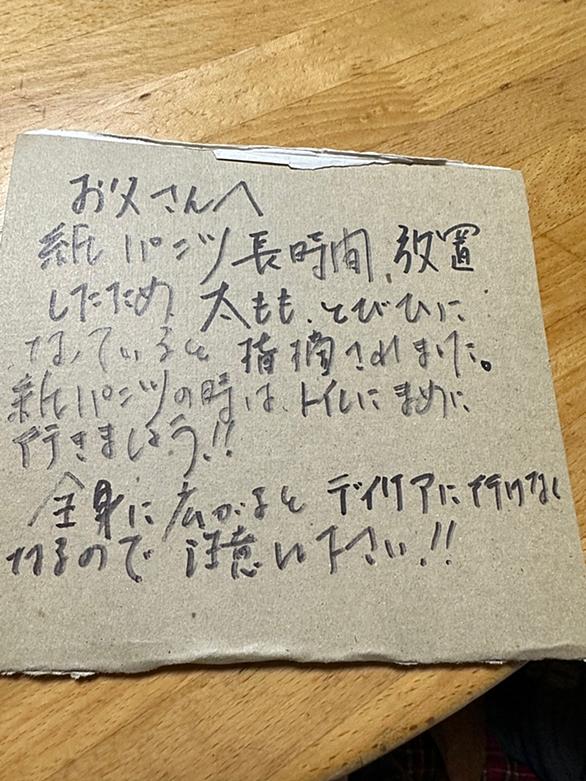 お父さんへ
紙パンツ長時間、放置
したため、太もも、とびひに
なっていると指摘されました。
紙パンツの時は、トイレにまめに
行きましょう!!
全身に広がるとデイケアに行けなく
なるので注意し下さい!!